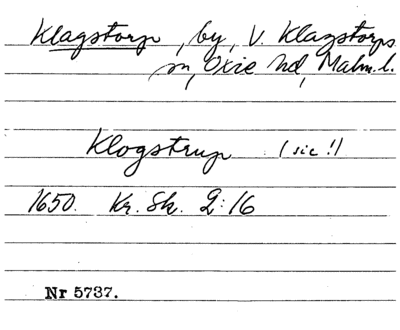 Klagstorp, by, V. Klagstorps
sn, Oxie hd, Malm. l.
Klogstrup (sic!)
1650. Kr. Sk. 2:16
Nr 5737.